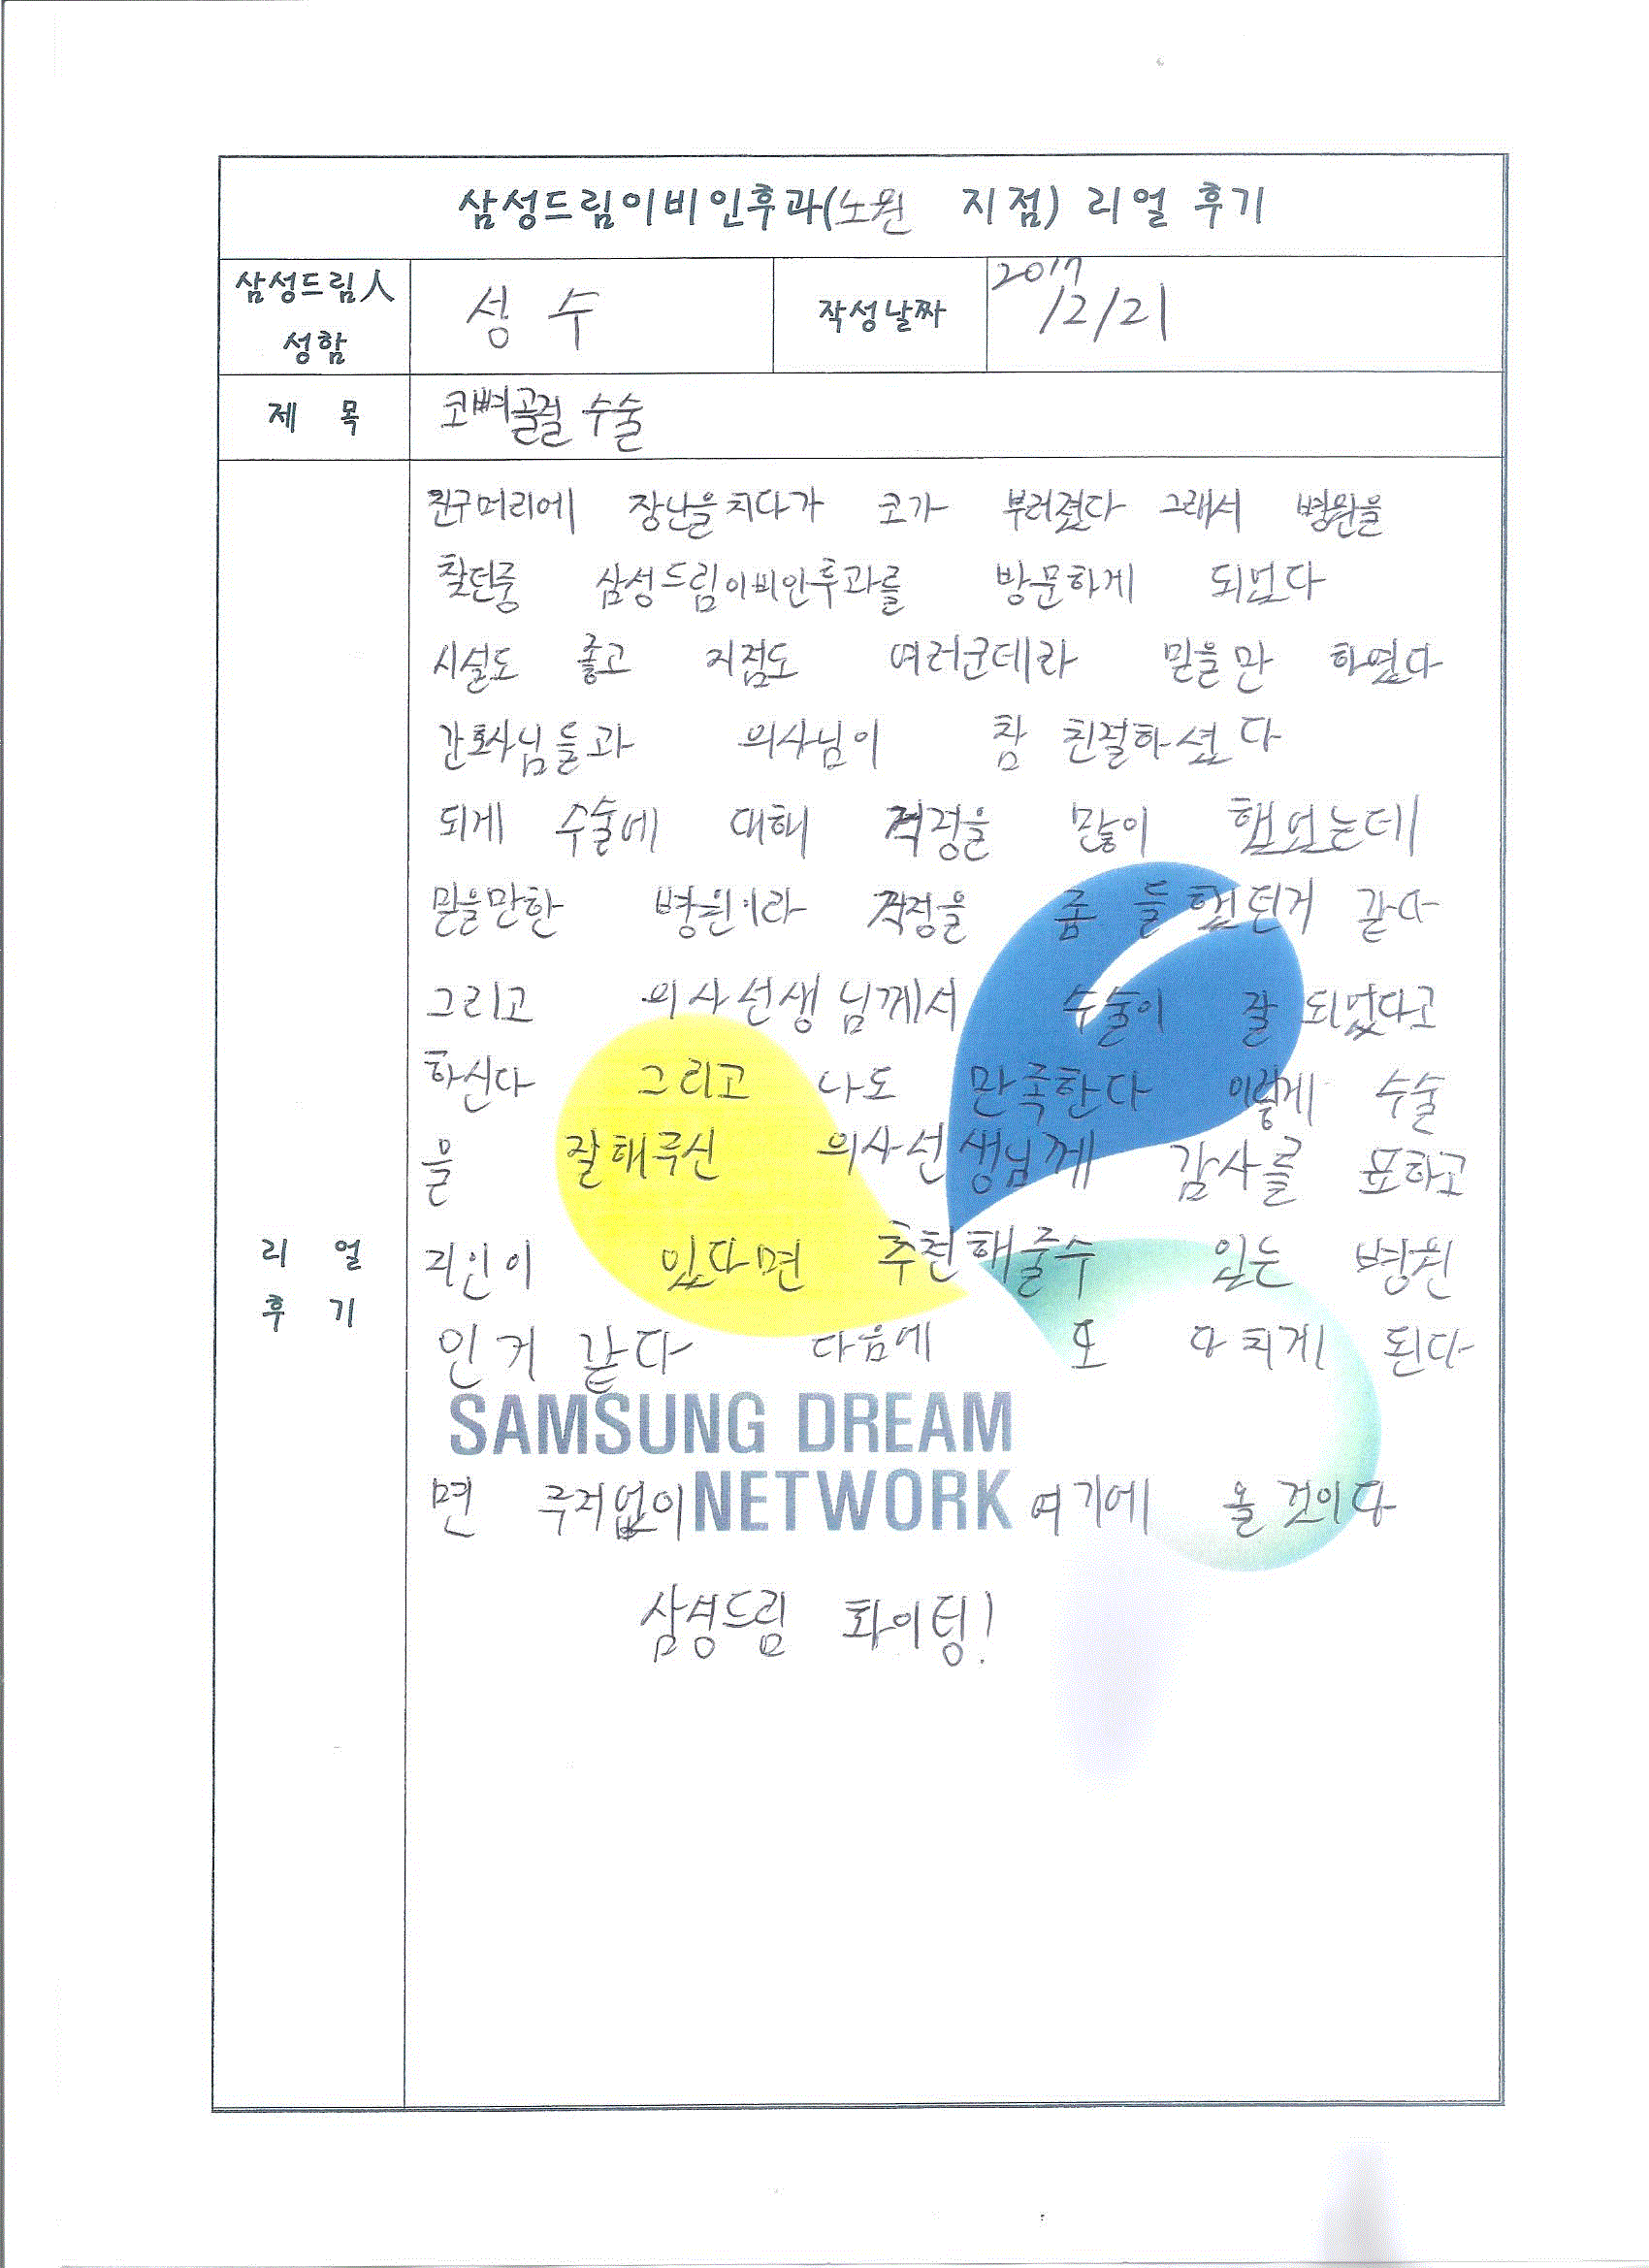 삼성드림이비인후과(노원 지점) 리얼 후기
삼성드림人 성함
성수
작성날짜
2017 12/21
제 목
코뼈골절 수술
리 얼 후 기
친구머리에 장난을치다가 코가 부러졌다 그래서 병원을
찾던중 삼성드림이비인후과를 방문하게 되었다
시설도 좋고 지점도 여러군데라 믿을만 하였다
간호사님들과 의사님이 참 친절하셨다
되게 수술에 대해 걱정을 많이 했었는데
믿을만한 병원이라 걱정을 좀 들했던거 같다
그리고 의사선생님께서 수술이 잘 되었다고
하신다 그리고 나도 만족한다 이렇게 수술
을 잘해주신 의사선생님께 감사를 표하고
지인이 있다면 추천해줄수 있는 병원
인거 같다 다음에 또 다치게 된다
SAMSUNG DREAM
NETWORK
면 주저없이 여기에 올것이다
삼성드림 화이팅!